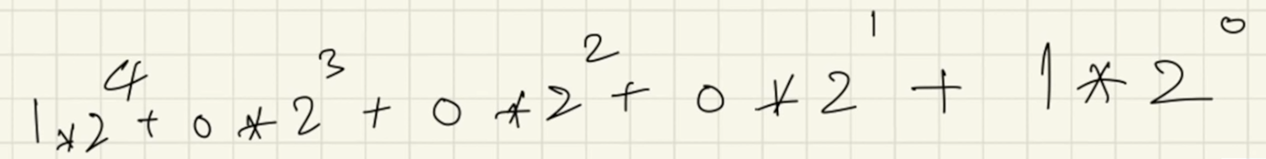 1*2⁴ + 0*2³ + 0*2² + 0*2¹ + 1*2⁰